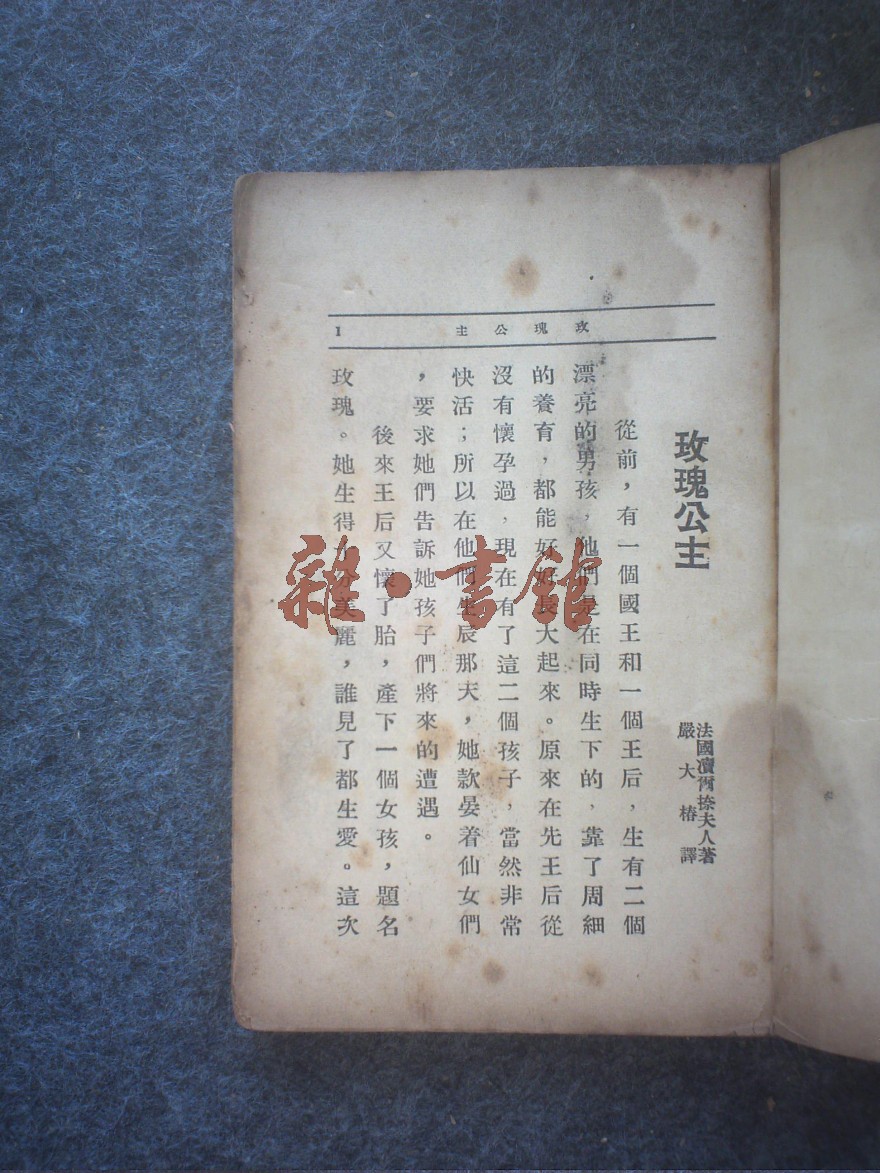 玫瑰公主
1
玫瑰公主
法國瀆胥捺夫人著
嚴大椿譯
從前，有一個國王和一個王后，生有二個
漂亮的男孩，他們是在同時生下的，靠了周細
的養育，都能好好長大起來。原來在先王后從
沒有懷孕過，現在有了這二個孩子，當然非常
快活；所以在他們生辰那天，她款晏着仙女們
，要求她們告訴她孩子們將來的遭遇。
後來王后又懷了胎，產下一個女孩，題名
玫瑰。她生得十分美麗，誰見了都生愛。這次
雜·書館